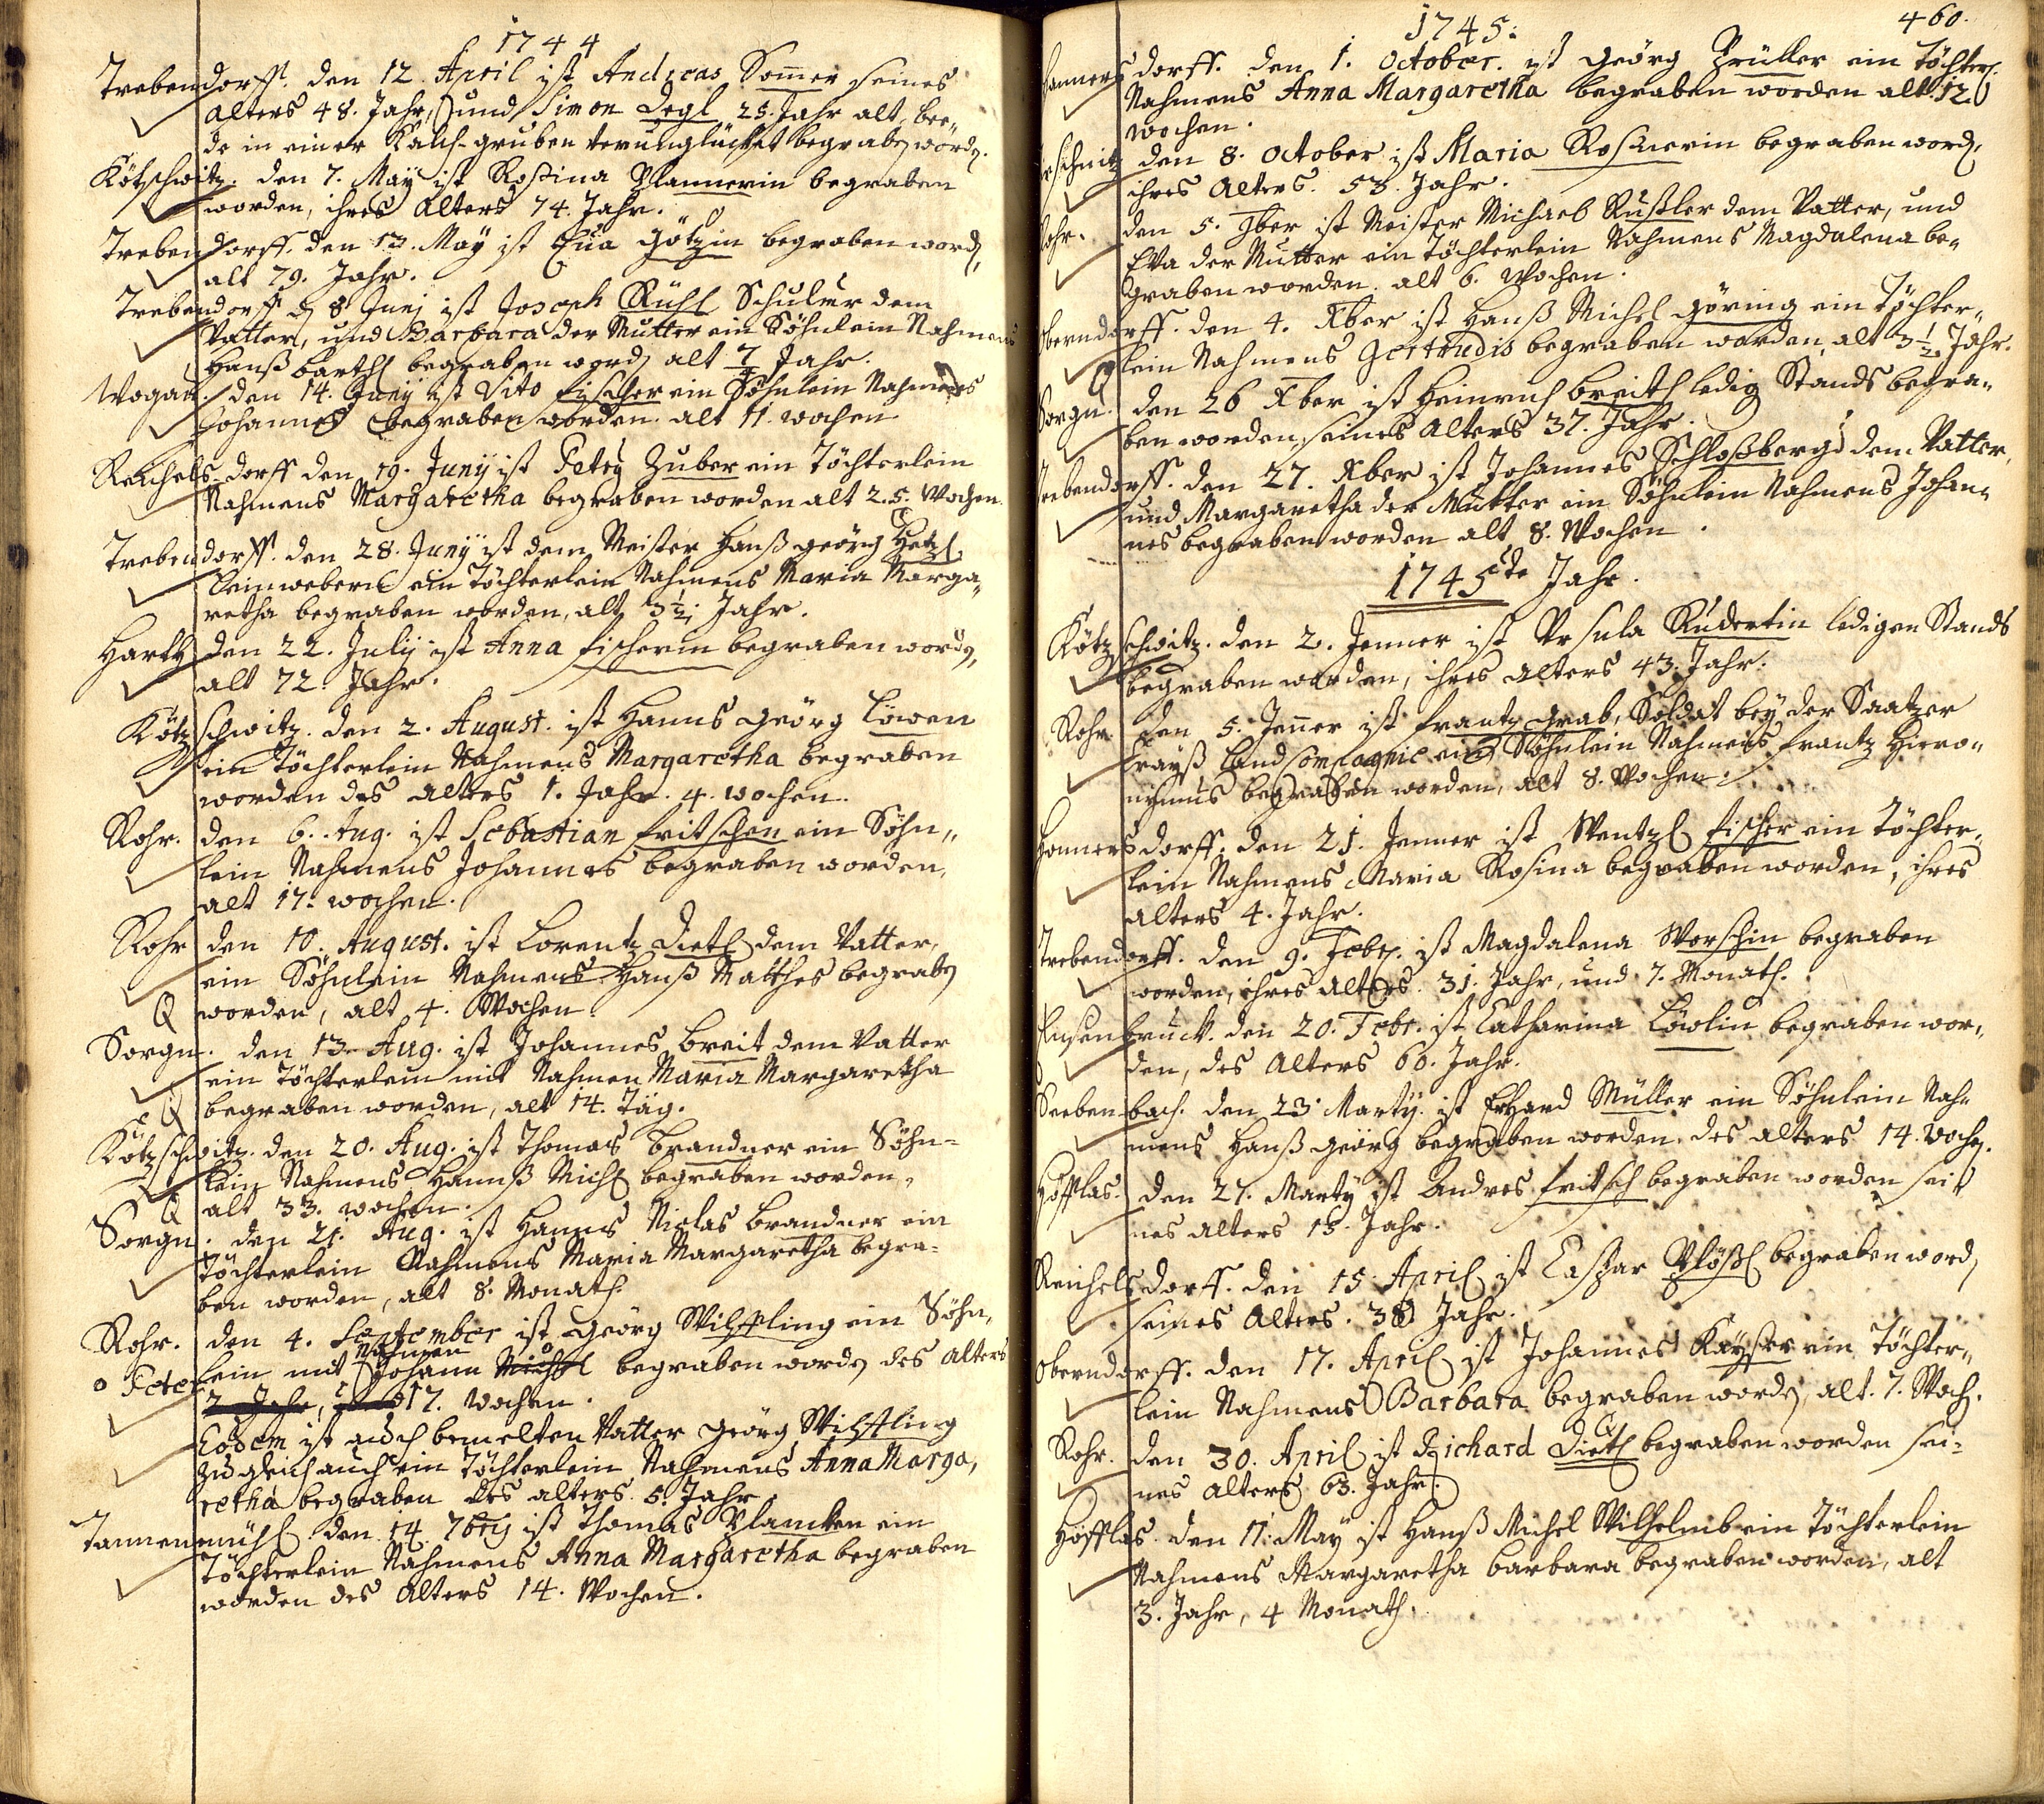 1744
Trebendorff. den 12. April ist Andreas Sommer seines
alters 48. Jahr, und Simon Degl 25. Jahr alt, bee„
de in einer Kalch-gruben verunglücket begraben worden.
Kötschwitz. den 7. May ist Rosina Plannerin begraben
worden, ihres alters 74. Jahr.
Trebendorff. den 13. May ist Eua Götzin begraben word,
alt 79. Jahr.
Trebendorff d 8 Junj ist Joseph Rühl Schulmr dem
Vatter, und Barbara der Mutter ein Söhnlein Nahmens
Hanß Barthl begraben word alt Jahr.
Wogau. den 14. Juny ist Vito Fischer ein Söhnlein Nahmens
Johannes begraben worden. alt 11. wochen
Reichelsdorff den 19. Junij ist Petrj Zuber ein Töchterlein
Nahmens Margaretha begraben worden alt 2. 5. Wochen.
Trebendorff. den 28. Junÿ ist dem Meister Hanß Geörg Hetzl
leinwebern ein Töchterlein Nahmens Maria Marga„
retha begraben worden, alt 3½. Jahr.
Hartt den 22. Julij ist Anna Fischerin begraben worden,
alt 72. Jahr.
Kötzschwitz. den 2. August. ist Hanns Geörg Löwen
ein Töchterlein Nahmens Margaretha begraben
worden des alters 1. Jahr. 4. wochen.
Rohr. den 6. Aug. ist Sebastian Fritschen ein Söhn„
lein Nahmens Johannes begraben worden,
alt 17. wochen.
Rohr den 10. August. ist Lorentz Dietl dem Vatter,
ein Söhnlein Nahmens Hanß Matthes begraben
worden, alt 4. Wochen.
Sorgn. den 13. Aug. ist Johannes Breit dem Vatter
ein Töchterlein mit Nahmen Maria Margaretha
begraben worden, alt 14. Täg.
Kötzschwitz. den 20. Aug. ist Thomas Brandner ein Söhn-
lein Nahmens Hannß Michl begraben worden,
alt 33. wochen.
Sorgn. den 21. Aug. ist Hanns Niclas Brandner ein
Töchterlein Nahmens Maria Margaretha begra-
ben worden, alt 8. Monath.
Rohr. den 4. September ist Geörg Wilfling ein Söhn„
o Peter lein mit Nahmen Johann Michl begraben worden des alters
2 Jahr, 17. wochen.
Eodem ist auch bemelten Vatter Geörg Wilfling
zugleich auch ein Töchterlein Nahmens Anna Marga„
retha begraben des alters. 5. Jahr
Tannenmühl den 14. 7bris ist Thomas Plancken ein
Töchterlein Nahmens Anna Margaretha begraben
worden des Alters 14. Wochen.
1745. 460.
Honnersdorff. den 1. October. ist Geörg Prüller ein Töchterl.
Nahmens Anna Margaretha begraben worden alt. 12.
wochen.
den 8. October ist Maria Rosnerin begraben word,
ihres Alters. 53. Jahr.
Rohr. den 5. 9ber ist Meister Michael Rußler dem Vatter, und
Eva der Mutter ein Töchterlein Nahmens Magdalena be„
graben worden. alt 6. Wochen.
Oberndorff. den 4. Xber ist Hanß Michel Göring ein Töchter„
lein Nahmens Gertrudis begraben worden, alt 3½. Jahr.
Sorgn. den 26 Xber ist Heinrich Breitl ledig Stands begra„
ben worden, seines Alters 37. Jahr.
Trebendorff. den 27. Xber ist Johannes Schloßberg dem Vatter,
und Margaretha der Mutter ein Söhnlein Nahmens Johan„
nes begraben worden alt 8. Wochen.
1745te Jahr.
Kötzschwitz. den 2. Jenner ist Ursula Rudertin ledigen Stands
begraben worden, ihres alters 43. Jahr.
Rohr. den 5. Jenner ist Frantz Grab, Soldat bey der Saatzer
Crayß land compagnie ein Söhnlein Nahmens Frantz Hiero„
nymus begraben worden, alt 8. Wochen.
Honnersdorff. den 21. Jenner ist Wentzl Fischer ein Töchter„
lein Nahmens Maria Rosina begraben worden, ihres
alters 4. Jahr.
Trebendorff. den 9. Febr. ist Magdalena Worschin begraben
worden, ihres alters. 31. Jahr, und 7. Monath.
Ensenbruck. den 20. Febr. ist Catharina Löwlin begraben wor„
den, des Alters 60. Jahr.
Seebenbach. den 23. Martÿ. ist Erhard Müller ein Söhnlein Nah„
mens Hanß Geörg begraben worden. des alters 14. wochen.
Höfflas. den 27. Martÿ ist Andres Fritsch begraben worden sei
nes alters 13. Jahr.
Reichelsdorff. den 15. April ist Caspar Plößl begraben word,
seines Alters. 38 Jahr.
Oberndorff. den 17. April ist Johannes Kaÿser ein Töchter„
lein Nahmens Barbara begraben worden, alt. 7. Woch.
Rohr. den 30. April ist Richard Dietl begraben worden sei-
nes alters 63. Jahr.
Höfflas. den 11. May ist Hanß Michel Wilhelmb ein Töchterlein
Nahmens Margaretha Barbara begraben worden, alt
3. Jahr, 4 Monath.